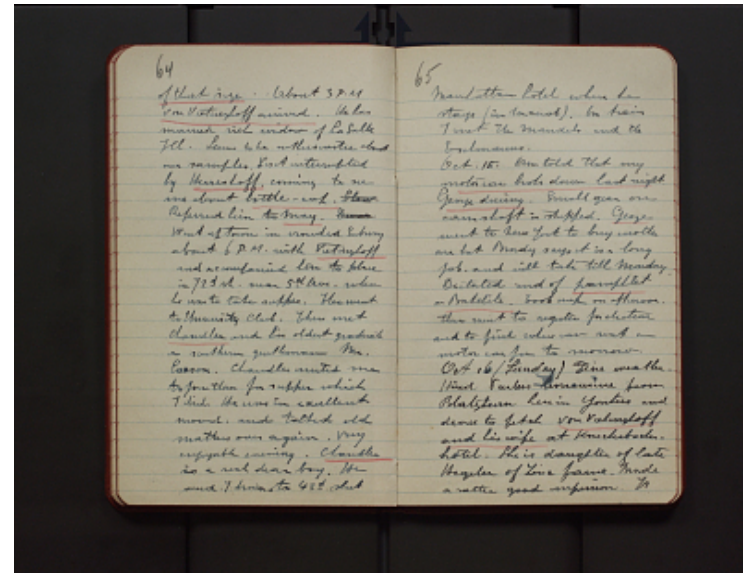 64
of that size. About 3 P.M
von Vietinghoff arrived. He has
married rich widow of La Salle
Ill. Seems to be enthusiastic about
our samples. Visit interrupted
by Herreshoff, coming to see
me about bottle-cap.
Referred him to May.
Went after to town in crowded Subway
about 6 P.M. with Vietinghoff
and accompanied him to place
in 72d st. near 5th Ave. where
he was to take supper. Then went
to University Club. There met
Chandler and his oldest graduate
a southern gentleman Mr.
Chandler invited me
to join them for supper which
I did. He was in excellent
mood. and talked old
matters over again. Very
enjoyable evening. Chandler
is a real dear boy. He
and I drove to 42d street
65
Manhattan hotel where he
stays (in transit). In train
I met the Mandels and the

Oct. 15. Am told that my
motorcar broke down last night
George driving. Small gear on
camshaft is stripped. George
went to New York to buy another
one but Brady says it is a long
job. and will take till Monday.
Dictated end of pamphlet
on Bakelite. Took nap in afternoon.
then went to register for election
and to find where can rent a
motor car for to morrow.
Oct 16 (Sunday) Fine weather.
Hired limousine from
here in Yonkers and
drove to fetch von Vietinghoff
and his wife at Knickerbocker
hotel. She is daughter of late
Hegeler of Zinc fame. Made
a rather good impression. To